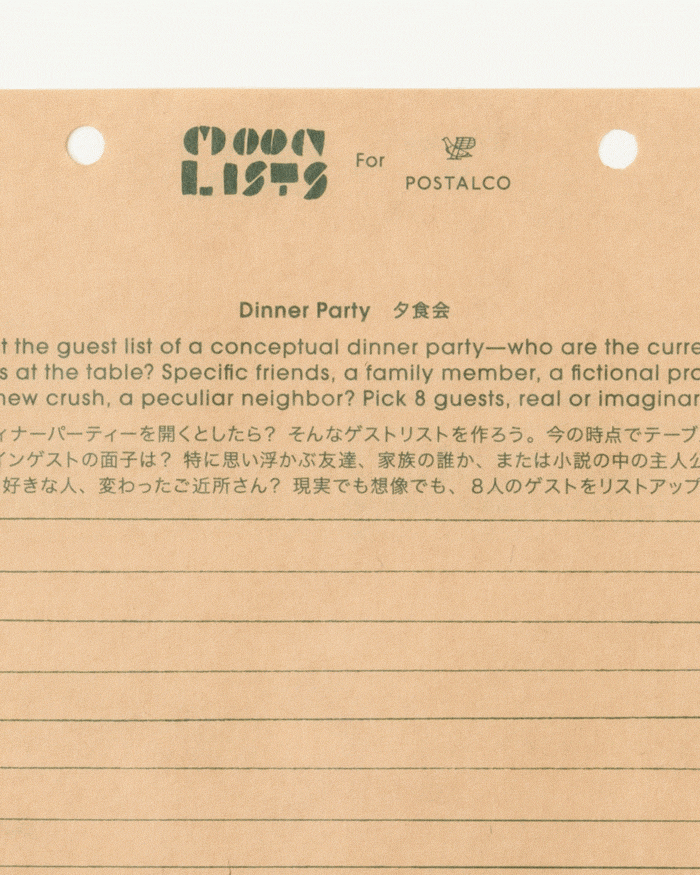 MOON
LISTS
For
POSTALCO
Dinner Party 夕食会
the guest list of a conceptual dinner party—who are the
at the table? Specific friends, a family member, a fictional
new crush, a peculiar neighbor? Pick 8 guests, real or
ィナーパーティーを開くとしたら? そんなゲストリストを作ろう。今の時点でテーブ
インゲストの面子は? 特に思い浮かぶ友達、家族の誰か、または小説の中の主人公
好きな人、変わったご近所さん? 現実でも想像でも、8人のゲストをリストアップ